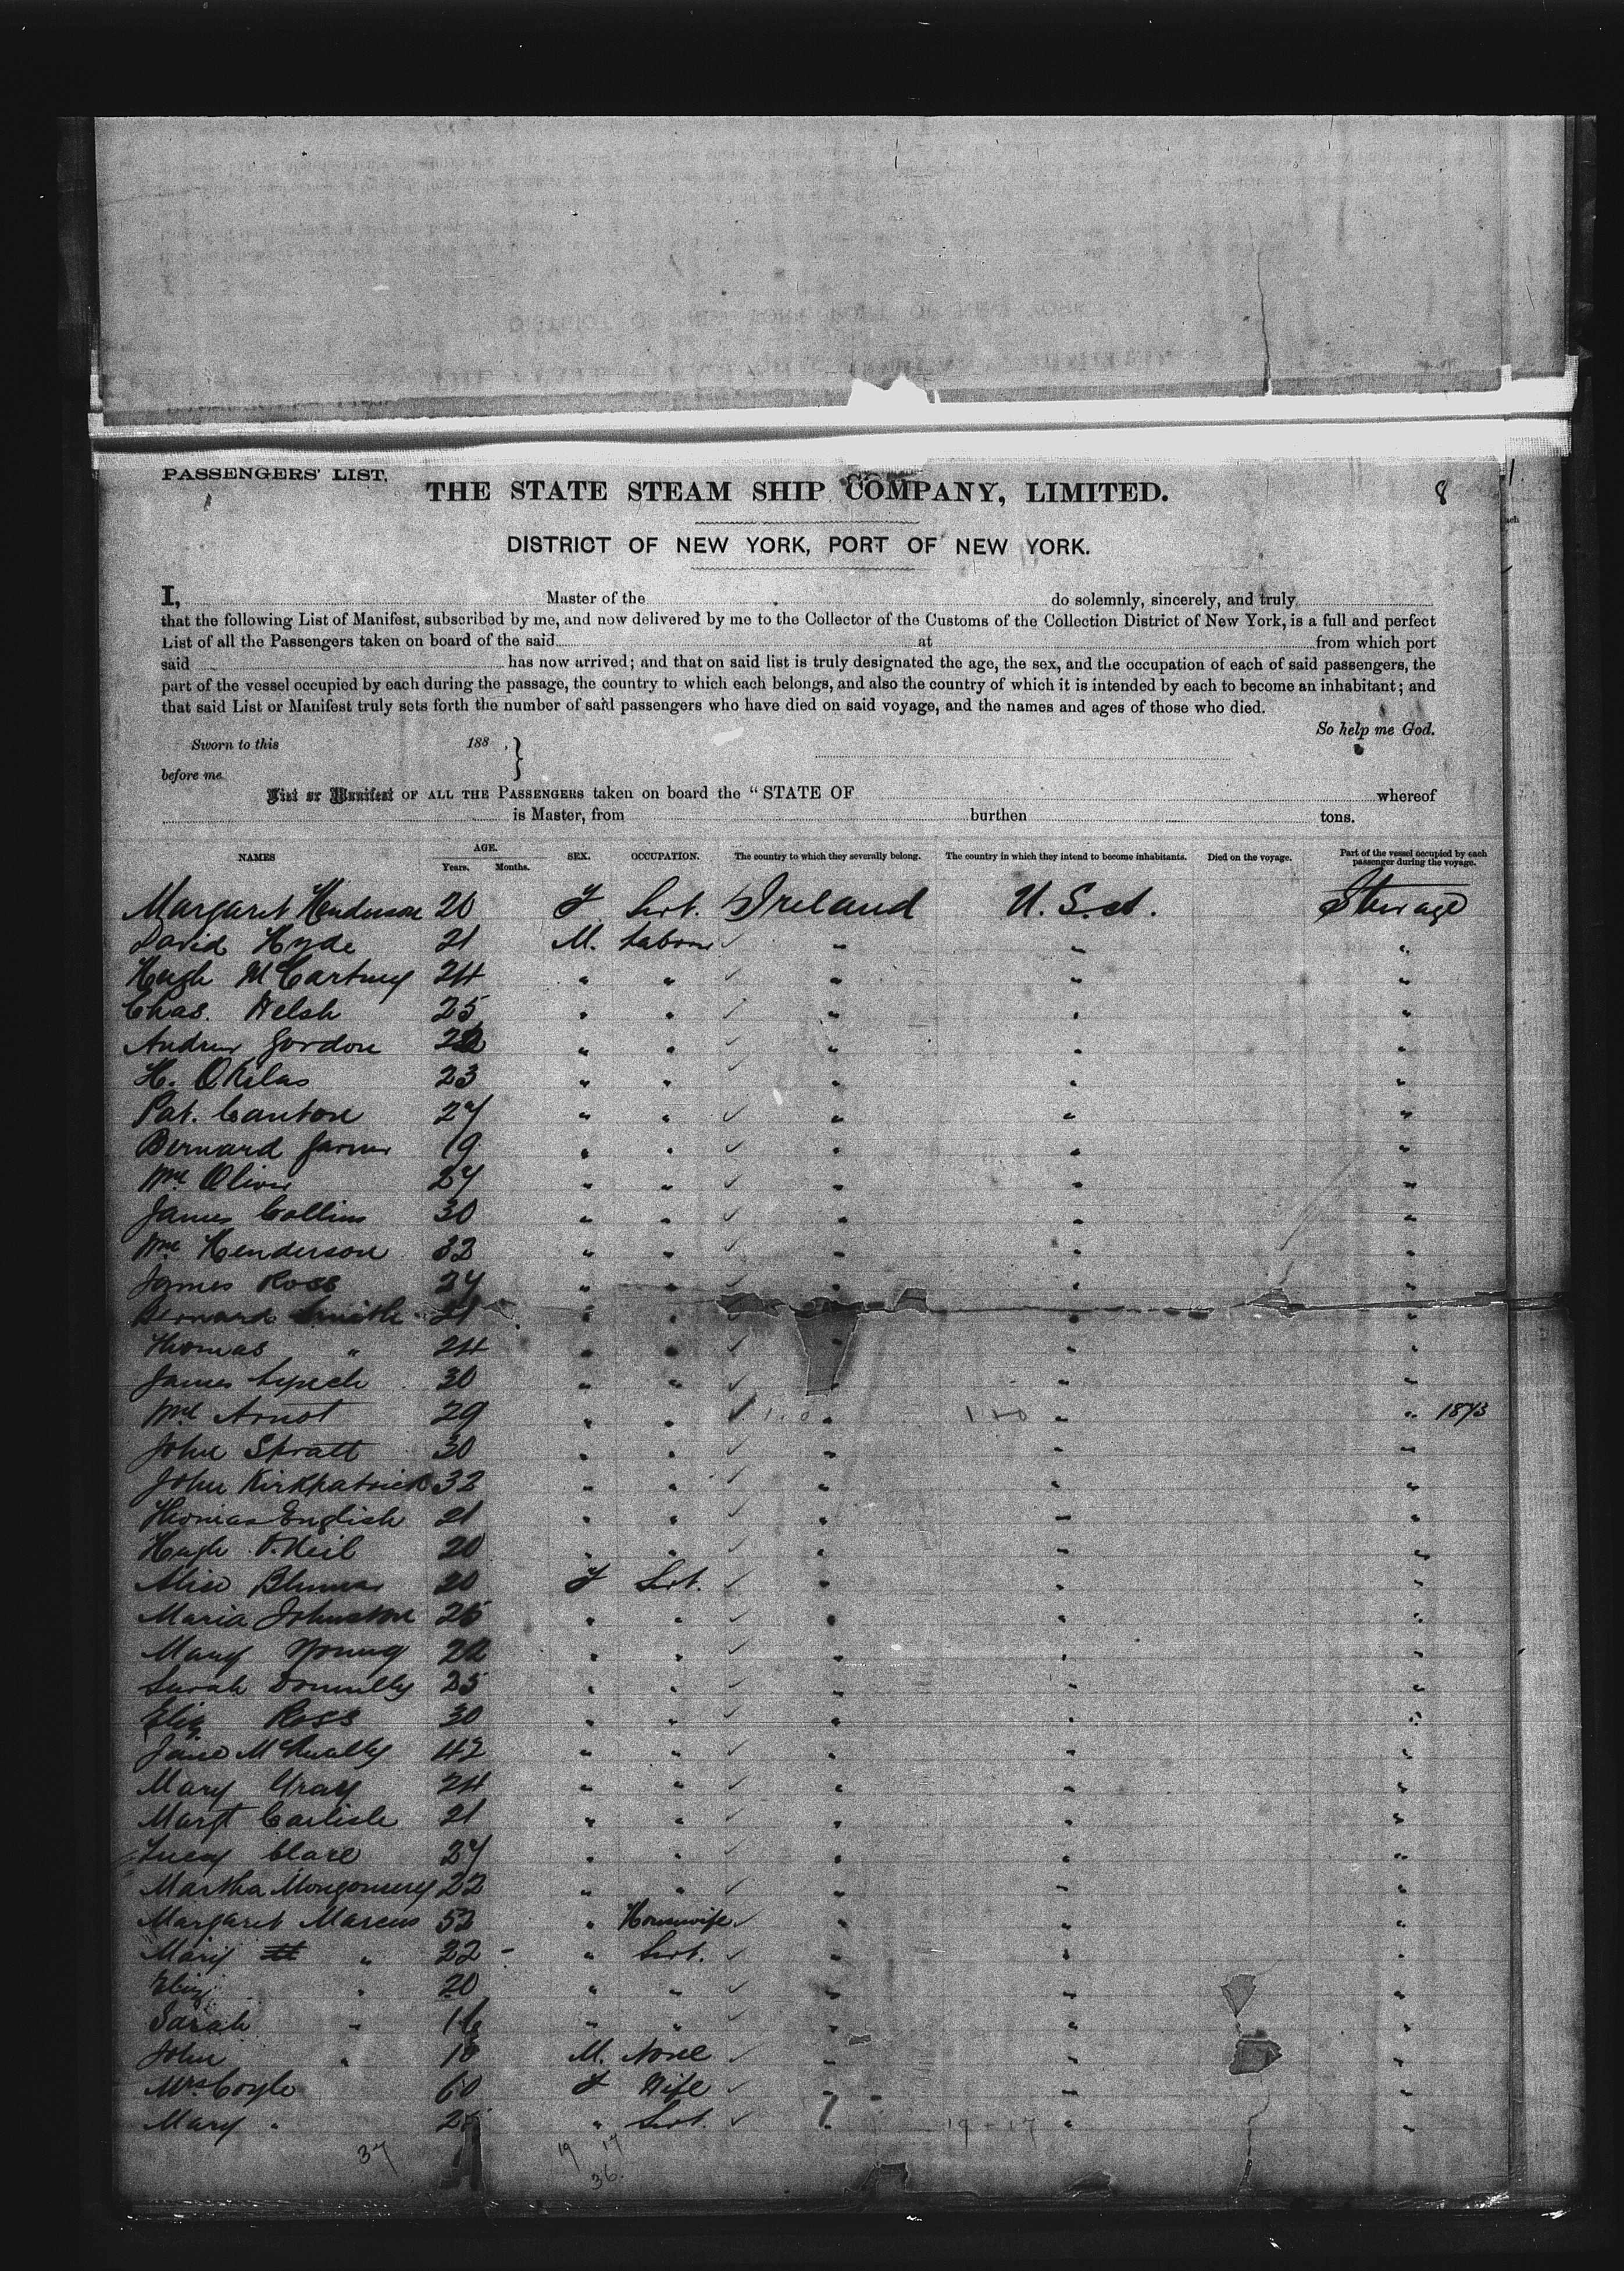 PASSENGERS' LIST.
THE STATE STEAM SHIP COMPANY, LIMITED.
8
DISTRICT OF NEW YORK, PORT OF NEW YORK.
I, Master of the do solemnly, sincerely, and truly
that the following List of Manifest, subscribed by me, and now delivered by me to the Collector of the Customs of the Collection District of New York, is a full and perfect
List of all the Passengers taken on board of the said at from which port
said has now arrived; and that on said list is truly designated the age, the sex, and the occupation of each of said passengers, the
part of the vessel occupied by each during the passage, the country to which each belongs, and also the country of which it is intended by each to become an inhabitant; and
that said List or Manifest truly sets forth the number of said passengers who have died on said voyage, and the names and ages of those who died.
So help me God.
Sworn to this 188 , }
before me
List or Manifest OF ALL THE PASSENGERS taken on board the "STATE OF whereof
is Master, from burthen tons.
NAMES AGE. Years. Months. SEX. OCCUPATION. The country to which they severally belong. The country in which they intend to become inhabitants. Died on the voyage. Part of the vessel occupied by each passenger during the voyage.
Margaret Henderson 20 F Sert. Ireland U.S.A. Steerage
David Hyde 21 M. Labour " " "
Hugh McCartney 24 " " " " "
Chas. Welsh 25 " " " " "
Andrew Gordon 22 " " " " "
H. 23 " " " " "
Pat. Canton 27 " " " " "
Bernard 19 " " " " "
Wm Oliver 27 " " " " "
James Collins 30 " " " " "
Wm Henderson 32 " " " " "
James Ross 27 " " " " "
Bernard Smith 21 " " " " "
Thomas " 24 " " " " "
James Lynch 30 " " " " "
Wm Arnot 29 " " " " " 1873
John Spratt 30 " " " " "
John Kirkpatrick 32 " " " " "
Thomas English 21 " " " " "
Hugh O.Neil 20 " " " " "
Alice 20 F Sert. " " "
Maria Johnston 26 " " " " "
Mary Young 22 " " " " "
Sarah Donnelly 25 " " " " "
Eliz Ross 30 " " " " "
Jane McNally 42 " " " " "
Mary Gray 24 " " " " "
Margt Carlisle 21 " " " " "
Lucy Clare 27 " " " " "
Martha Mongomery 22 " " " " "
Margaret Marcus 52 " Housewife " " "
Mary " 22 - " Sert. " " "
Eliz " 20 " " " " "
Sarah " 16 " " " " "
John " 18 M. None " " "
Mrs Coyle 60 F Wife " " "
Mary " " Sert. " " "
19 - 17
37 19 17
36.